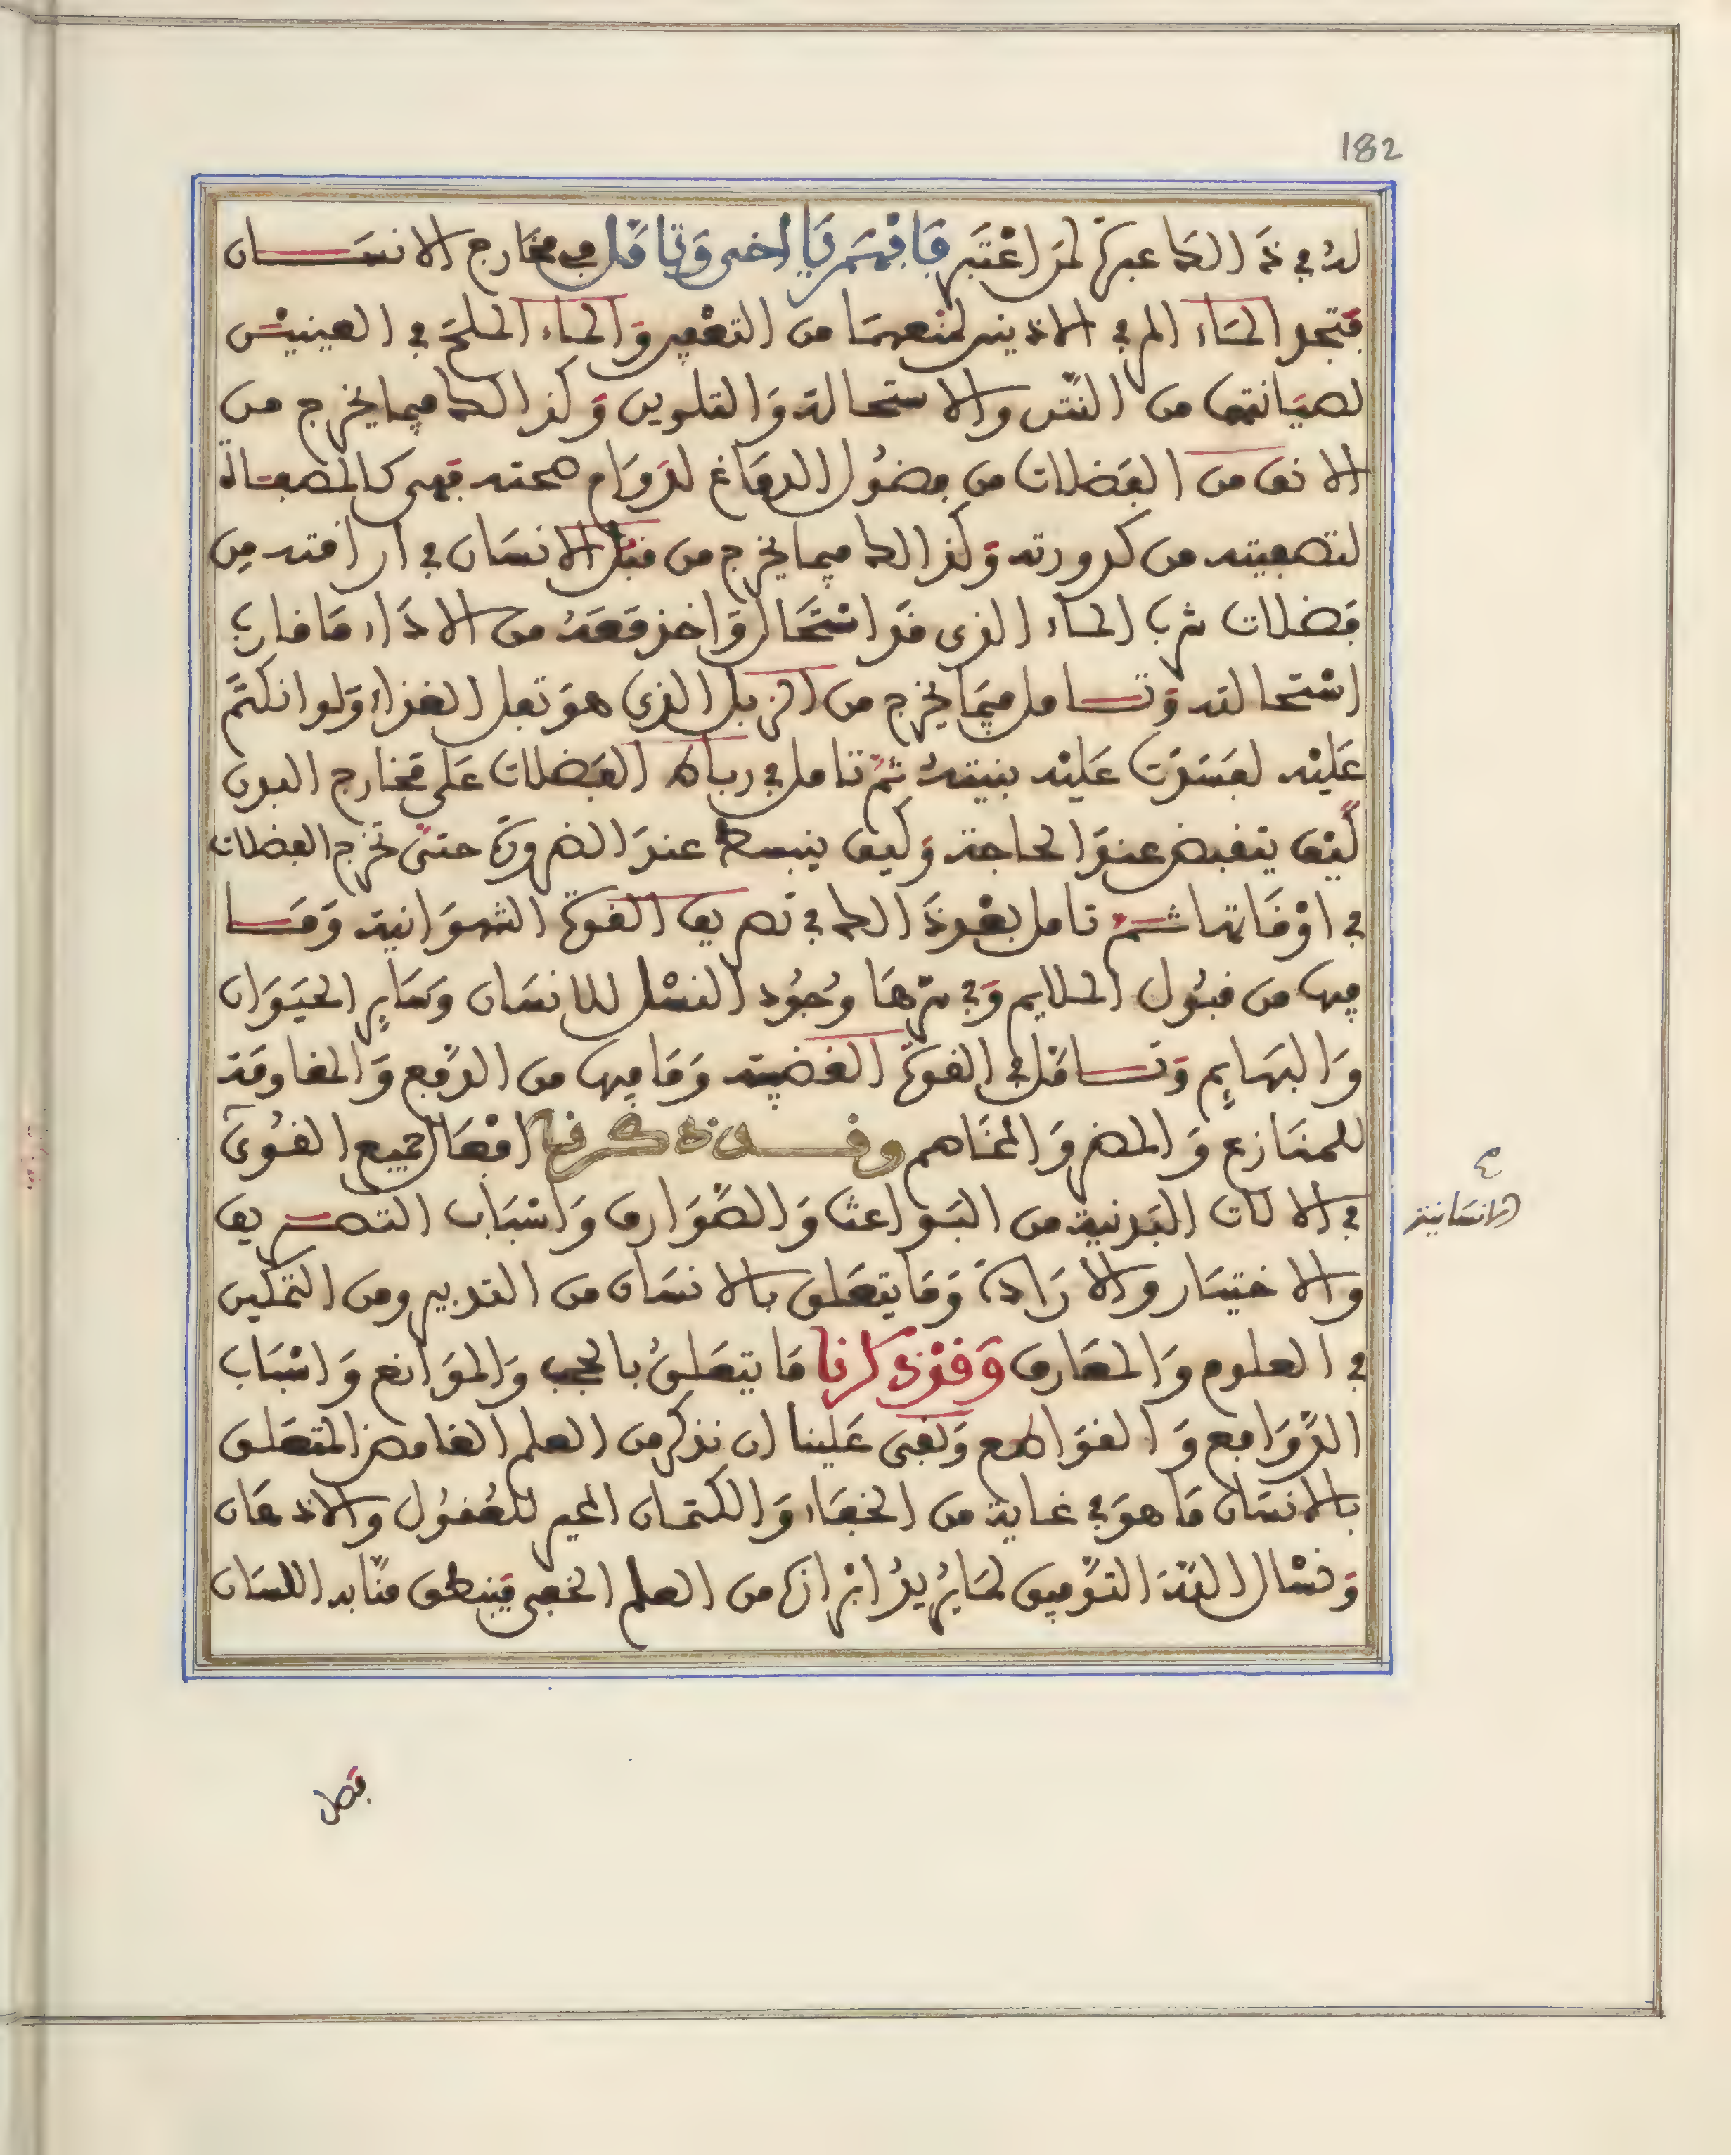 182
له في ذَالك عبرة لمن اعْتَبر فَافْهَم يَا اخى وَتامَّل في مخَارج الانسَان
فتجد المَاء المر في الاذنين لمنعهمَا من التغْيير وَالماء الملح في العينيْن
لصيَانتهما من النَّتن والاستحالة وَالتلوين وَكذالك فيما يخرج من
الانف من الفَضلات من فضُول الدمَاغ لدوَام صحته فهى كالمصفاة
لتصفيته من كدورته وَكذالك فيما يخرج من قبُل الانسَان في اراقته من
فضلات شرب الماء الذى قَد اسْتَحَال وَاخذ مَعَهُ من الاذَاء مَا قارب
اسْتحالته وَتامل فيمَا يخرج من الزبل الذى هوَ ثفل الغذاء وَلو انكتَم
عَليْه لفَسَدَت عَليْه بنيتهُ ثمَّ تامل في رباط الفَضلات عَلى مخَارج البدن
كيْف ينقبض عندَ الحاجة وَكيف ينبسط عندَ الضرورَة حتىَّ تخرج الفضلات
في اوْقَاتها ثمَّ تامل بعْد ذَالك في تصريف القوة الشهوَانية وَمَا
فيها من قبُول الملايم وَفي سرّهَا وُجُود النسْل للانسَان وَسَايِر الحيَوَان
وَالبهَايِم وَتامَّل في القوة الغضبية وَمَا فيها من الدفع وَالمقاومَة
للمنَازع وَالمضر وَالمخَاصم وقد ذكرنا افْعَال جميع القُوىَ
الانسَانية صح
في الالات البَدنية من البَواعث وَالصَّوَارف وَاسْبَاب التصريف
والاختيَار والارَادة وَمَا يتعَلق بالانسَان من التدبير ومن التمكين
في العلوم وَالمعَارف وَقدْ ذكرنا مَا يتعَلقُ بالحجب وَالموَانع وَاسْبَاب
الدَّوَافع وَالقوَاطع وَبقى عَلينا ان نذكر من العلم الغامض المتعَلق
بالانسَان مَا هوَ في غاية من الخفَاء وَالكتمان المحير للعُقُول والاذهَان
وَنسْال اللهَ التوْفيق لمَا يُريدُ ابْرازه من العلم الخفى فينطق منَّا به اللسَان
فصل